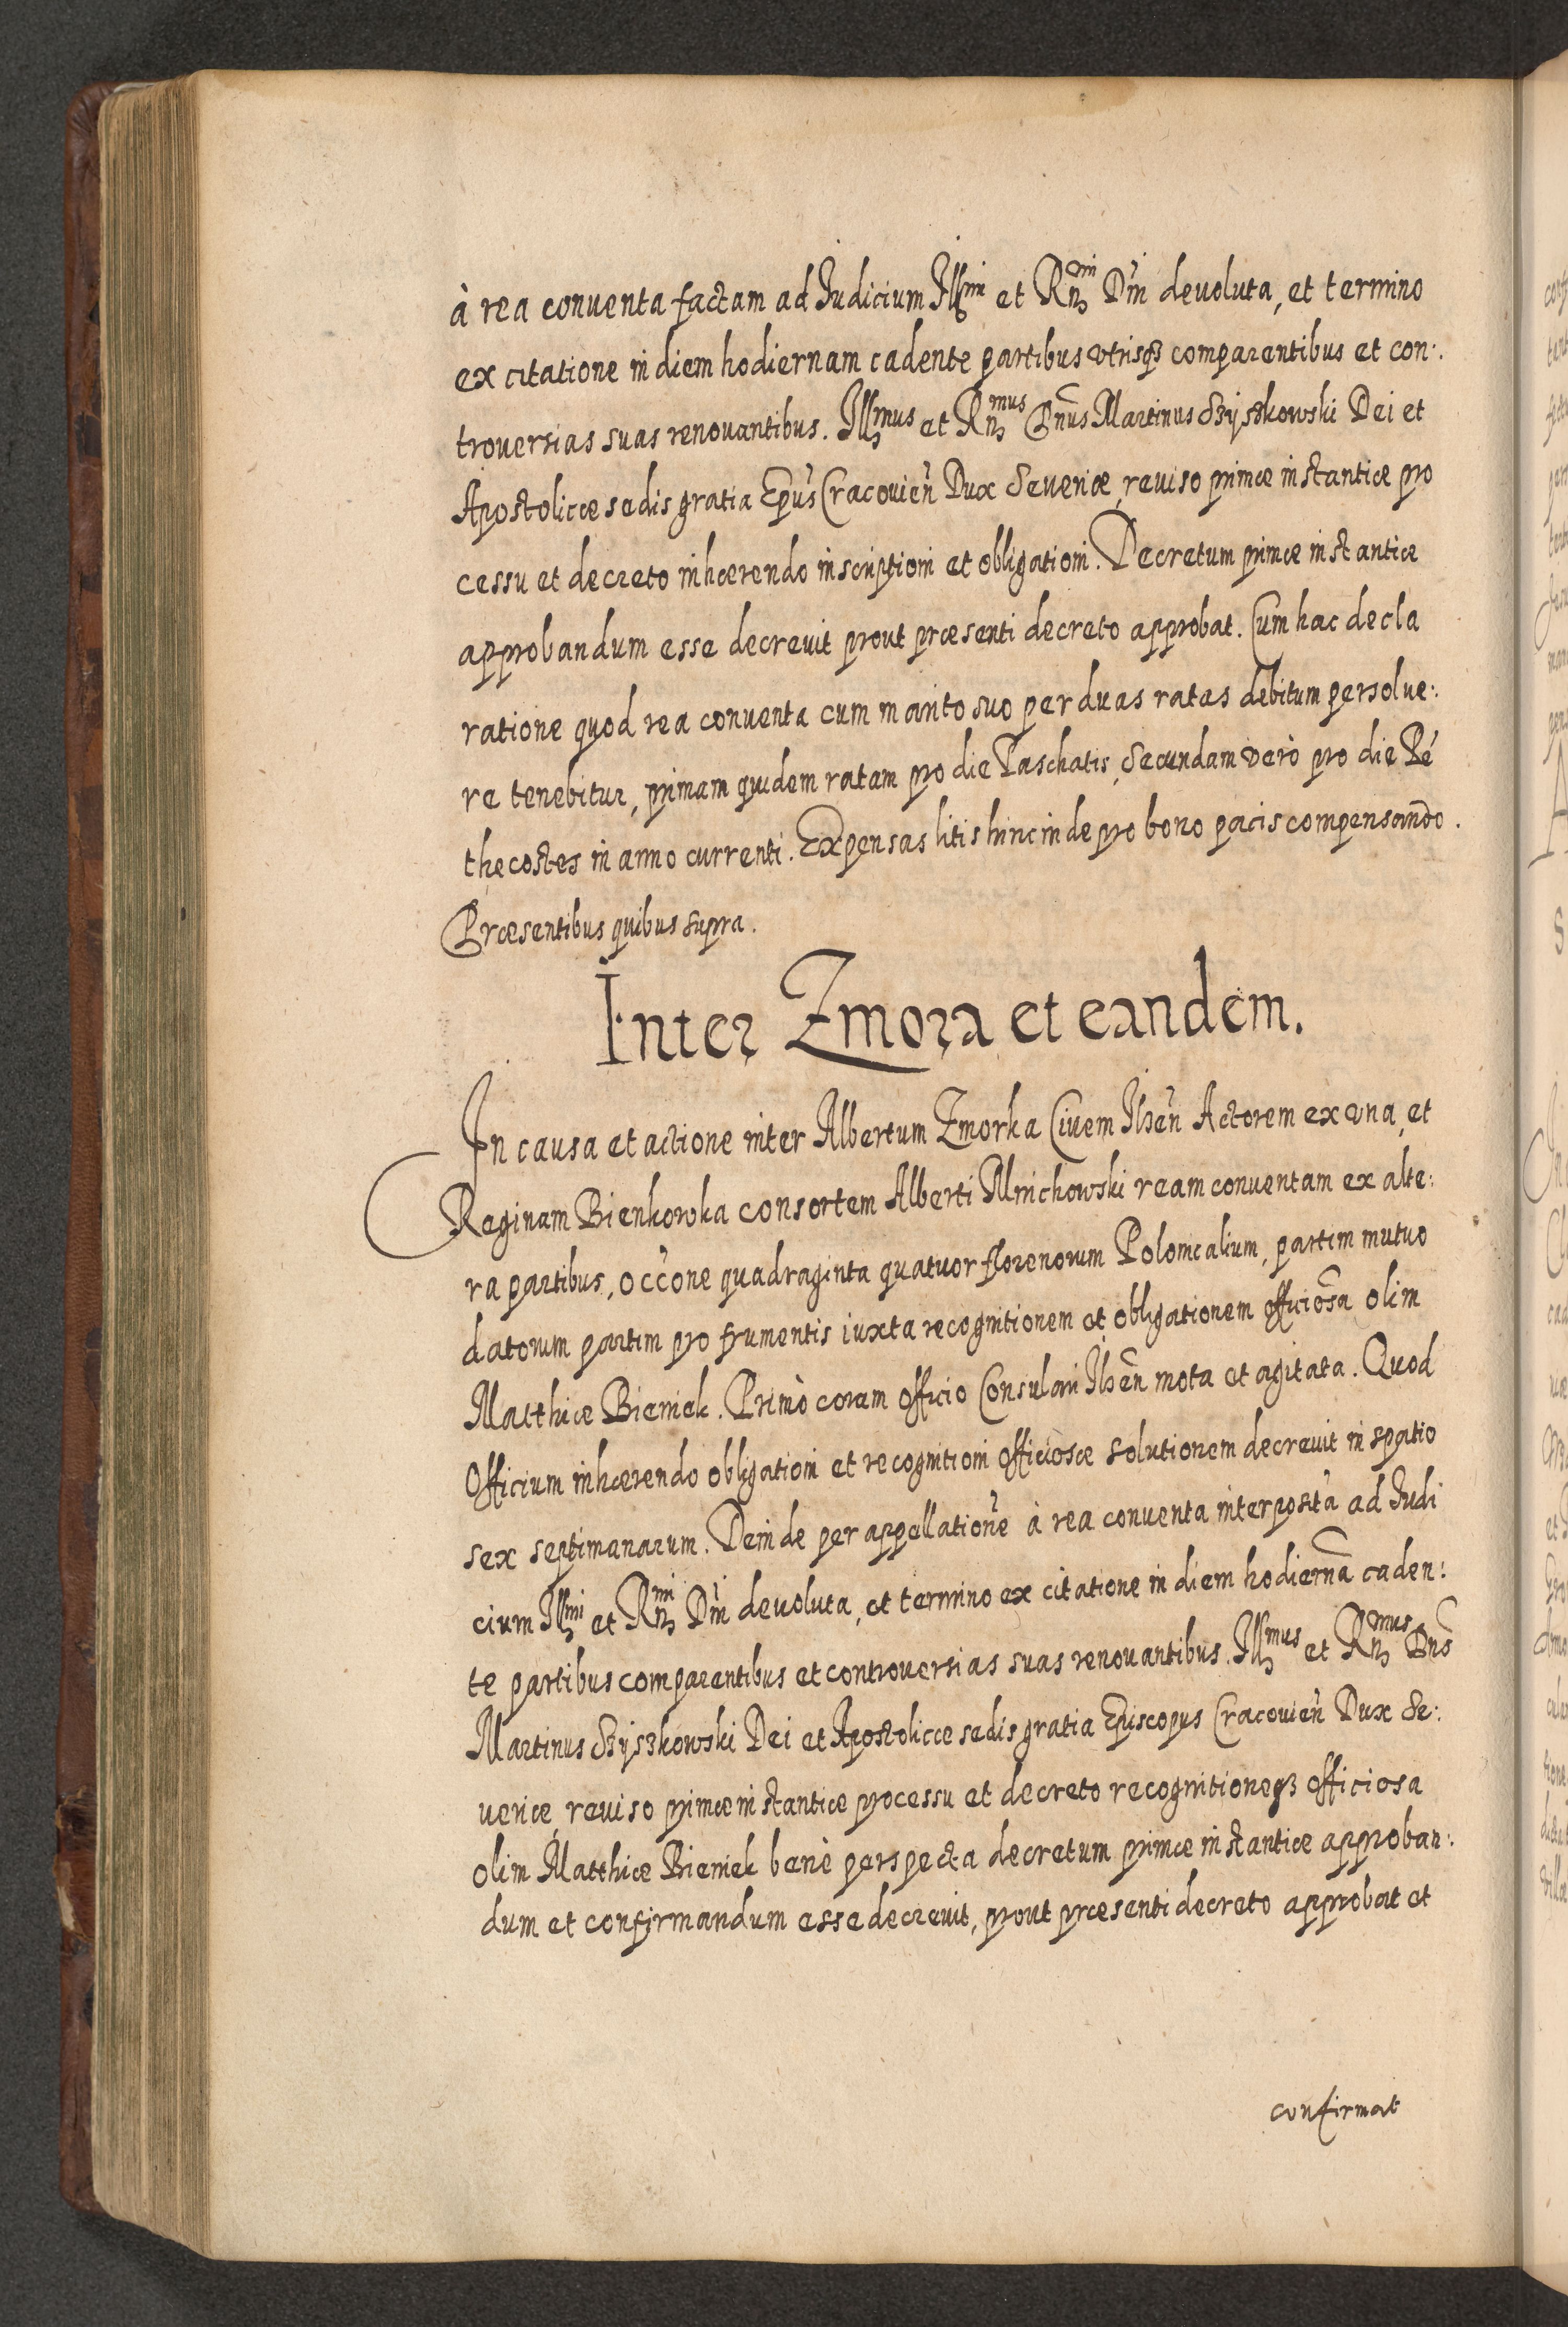 à rea conuenta factam ad Iudicium Illmi et Rmi Dni deuoluta, et termino
ex citatione in diem hodiernam cadente partibus vtrisqꝫ comparentibus et con:
trouersias suas renouantibus. Illmus et Rmus Dnus Martinus Szyszkowski Dei et
Apostolicæ sedis gratia Epus Cracouien Dux Seueriæ, reuiso primæ instantiæ pro
cessu et decreto inhærendo inscriptioni et obligationi. Decretum primæ instantiæ
approbandum esse decreuit prout præsenti decreto approbat. Cum hac decla
ratione quod rea conuenta cum marito suo per duas ratas debitum persolue:
re tenebitur, primam quidem ratam pro die Paschatis, Secundam verò pro die Pé
thecostes in anno currenti. Expensas litis hinc inde pro bono pacis compensando.
Præsentibus quibus supra.
Inter Zmora et eandem.
In causa et actione inter Albertum Zmorka Ciuem Ilzen Actorem ex vna, et
Reginam Bienkowka consortem Alberti Mnichowski ream conuentam ex alte:
ra partibus, occone quadraginta quatuor florenorum Polonicalium, partim mutuo
datorum partim pro frumentis iuxta recognitionem et obligationem officiosã olim
Matthiæ Bieniek. Primò coram officio Consulari Ilzen mota et agitata. Quod
Officium inhærendo obligationi et recognitioni officiosæ solutionem decreuit in spatio
sex septimanarum. Deinde per appellatione à rea conuenta interposita ad Iudi
cium Illmi et Rmi Dni deuoluta, et termino ex citatione in diem hodiernã caden:
te partibus comparentibus et controuersias suas renouantibus. Illmus et Rmus Dns
Martinus Szyszkowski Dei et Apostolicæ sedis gratia Episcopus Cracouien Dux Se:
ueriæ, reuiso primæ instantiæ processu et decreto recognitioneqꝫ officiosa
olim Matthiæ Bieniek benè perspecta decretum primæ instantiæ approban:
dum et confirmandum esse decreuit, prout præsenti decreto approbat et
confirmat